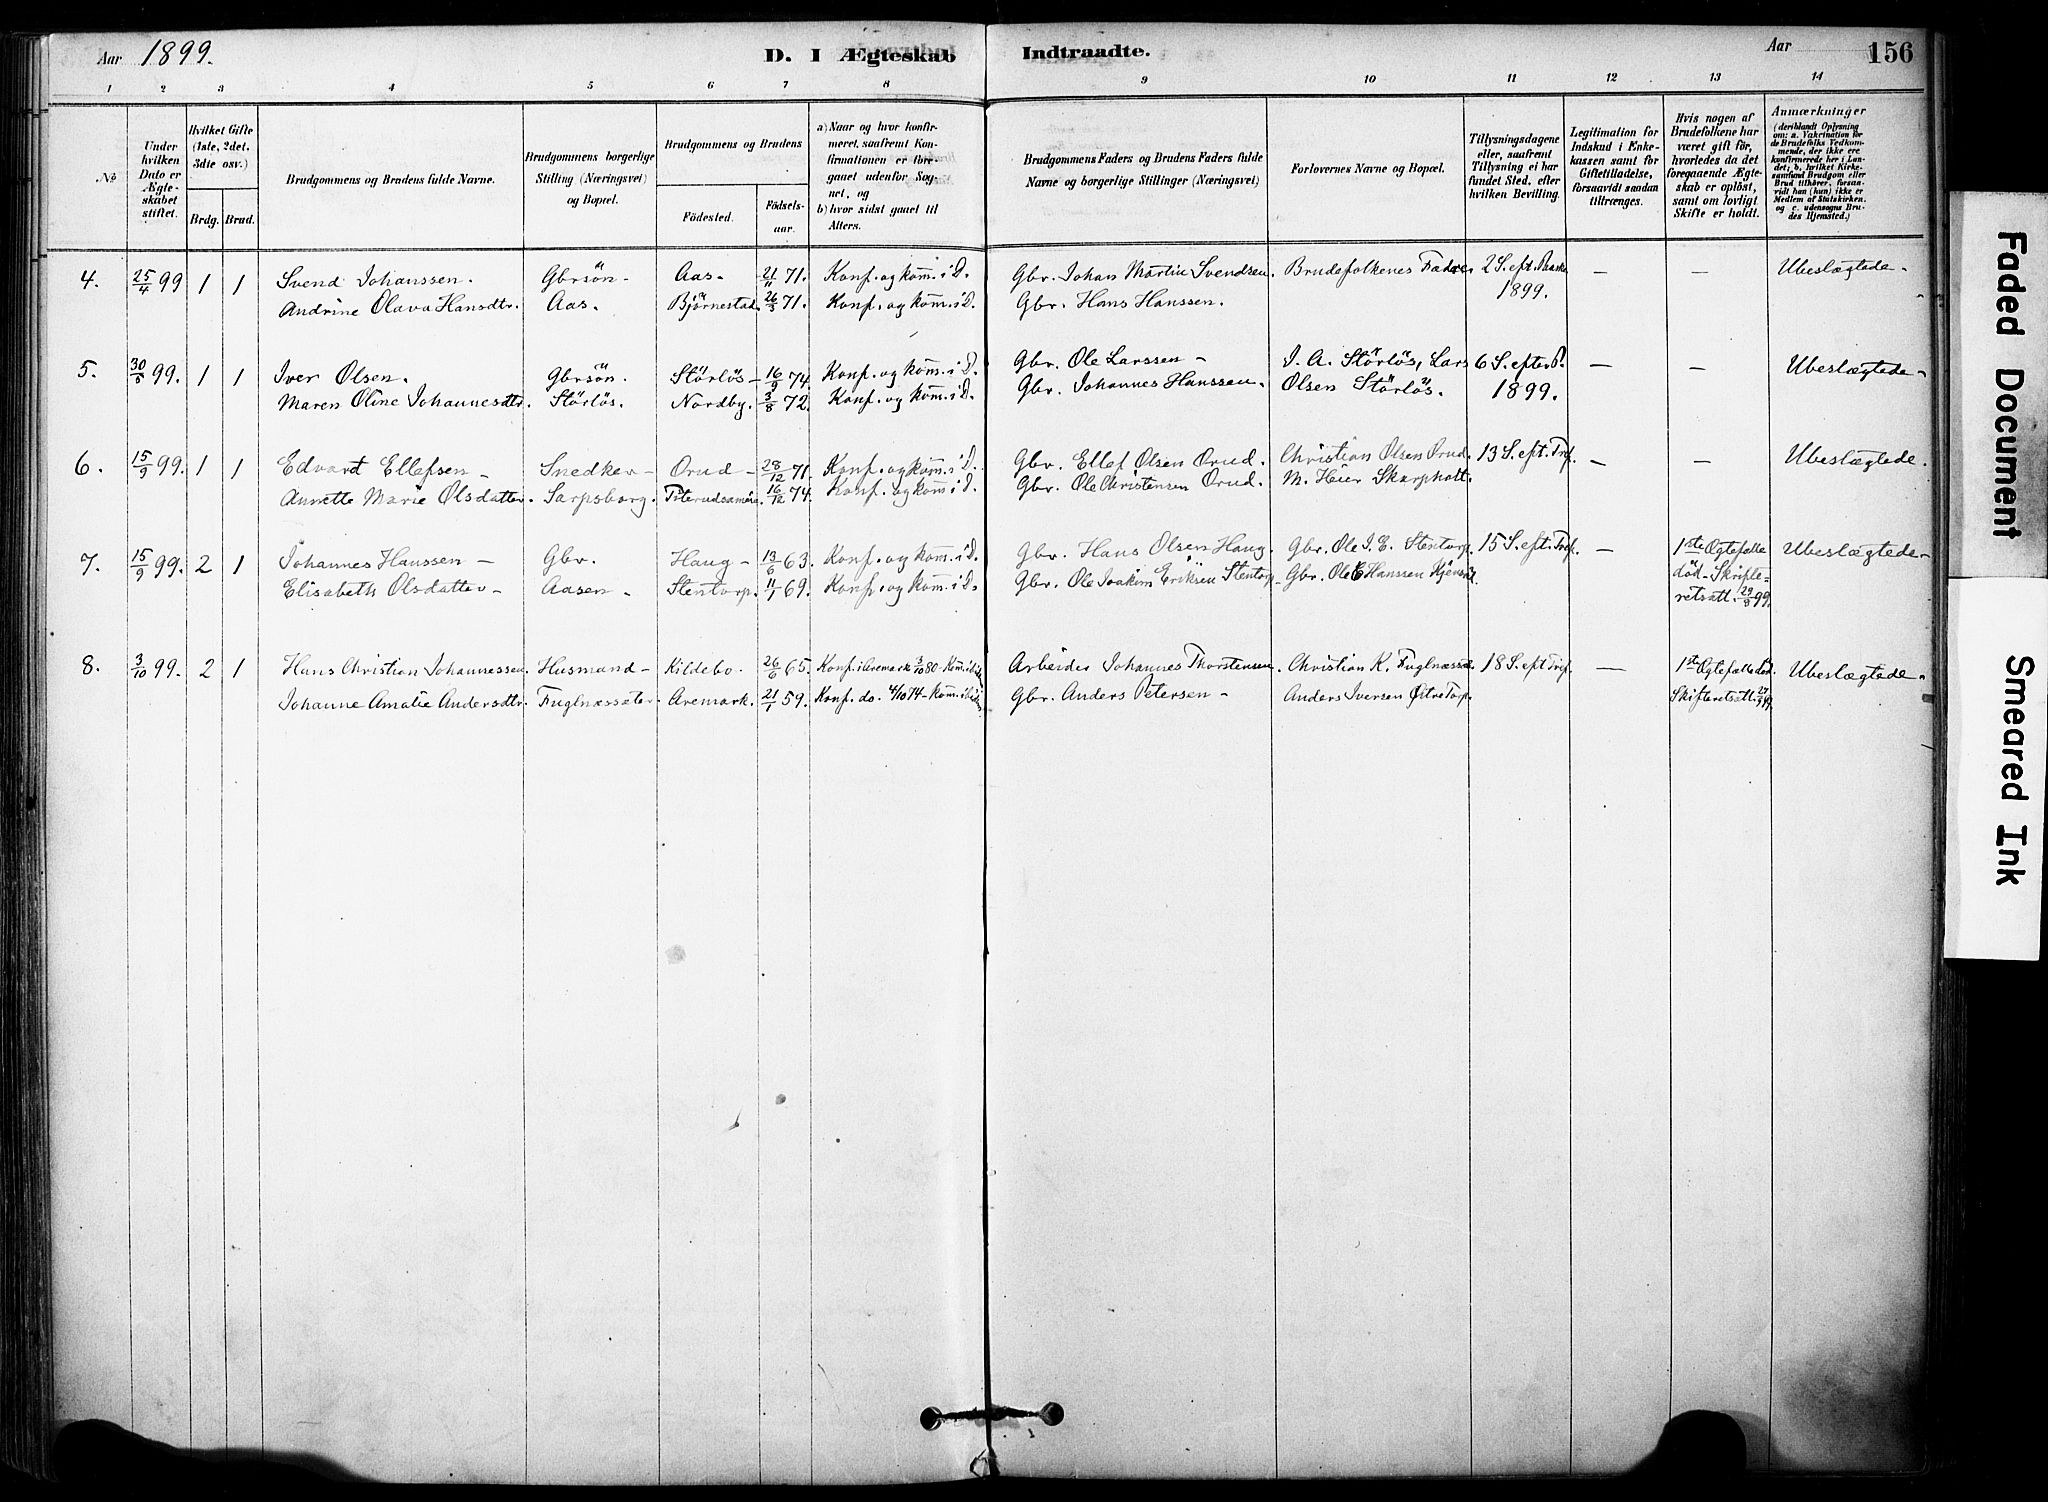 Aar 1899. D. I Ægteskab Indtraadte. Aar 156
1 2 3 4 5 6 7 8 9 10 11 12 13 14
No
Under hvilken Dato er Ægteskabet stiftet.
Hvilket Gifte (1ste, 2det, 3die osv.)
Brdg. Brud.
Brudgommens og Brudens fulde Navne.
Brudgommens borgerlige Stilling (Næringsvei) og Bopæl.
Brudgommens og Brudens
Fødested. Fødselsaar.
a) Naar og hvor konfirmeret, saafremt Konfirmationen er foregaaet udenfor Sognet, og
b) hvor sidst gaaet til Alters.
Brudgommens Faders og Brudens Faders fulde Navne og borgerlige Stillinger (Næringsvei)
Forlovernes Navne og Bopæl.
Tillysningsdagene eller, saafremt Tillysning ei har fundet Sted, efter hvilken Bevilling.
Legitimation for Indskud i Enkekassen samt for Giftetilladelse, forsaavidt saadan tiltrænges.
Hvis nogen af Brudefolkene har været gift før, hvorledes da det foregaaende Ægteskab er opløst, samt om lovligt Skifte er holdt.
Anmærkninger (deriblandt Oplysning om: a. Vakcination for de Brudefolks Vedkommende, der ikke ere konfirmerede her i Landet; b. hvilket Kirkesamfund Brudgom eller Brud tilhører, forsaavidt han (hun) ikke er Medlem af Statskirken, og c. udensogns Brudes Hjemsted.)
4. 25/4 99 1 1 Svend Johanssen. Gbrsön - Aas - 21/11 71. Konf. og kom. i D. Gbr. Johan Martin Svendsen. Brudefolkenes Fædre 2 S. eft. Paaske — — Ubeslægtede -
Andrine Olava Hansdtr. Aas. Björnestad 26/3 71. Konf. og kom. i D. Gbr. Hans Hanssen. 1899.
5. 30/5 99. 1 1 Iver Olsen. Gbrsön. Störlös - 16/9 74. Konf. og kom. i D. Gbr. Ole Larssen - I. A. Störlös, Lars 6 S. efter P. — — Ubeslægtede -
Maren Oline Johannesdtr. Störlös. Nordby. 3/8 72. Konf. og kom. i D. Gbr. Johannes Hanssen. Olsen Störlös. 1899.
6. 15/9 99. 1 1 Edvart Ellefsen - Snedker - Orud - 28/12 71. Konf. og kom. i D. Gbr. Ellef Olsen Orud. Christian Olsen Orud. 13 S. eft. Tref. — — Ubeslægtede.
Annette Marie Olsdatter. Sarpsborg. 16/12 74. Konf. og kom. i D. Gbr. Ole Christensen Orud. M. Heier Skarpholt.
7. 15/9 99. 2 1 Johannes Hanssen - Gbr. Haug - 13/6 63. Konf. og kom. i D. Gbr. Hans Olsen Haug. Gbr. Ole I. E. Stentorp. 15 S. eft. Tref. — 1ste Ægtefælle Ubeslægtede -
Elisabeth Olsdatter - Aasen - Stentorp. 11/1 69. Konf. og kom. i D. Gbr. Ole Joakim Eriksen Stentorp - Gbr. Ole E Hanssen död - Skifte-
retsatt. 29/8 99.
8. 3/10 99. 2 1 Hans Christian Johannessen. Husmand - Kildebo. 26/6 65. Konf. i Aremark 3/10 80 - Kom. Arbeider Johannes Thorstensen. Christian K. Fuglnæssæt. 18 S. eft Tref. — 1ste Ægtefælle död. Ubeslægtede -
Johanne Amalie Andersdtr. Fuglnæssæter. Aremark. 21/1 59. Konf. do. 4/10 74 - kom. Gbr. Anders Petersen - Anders Iversen Østre Torp Skifteretsatt. 99.
Faded Document
Smeared Ink